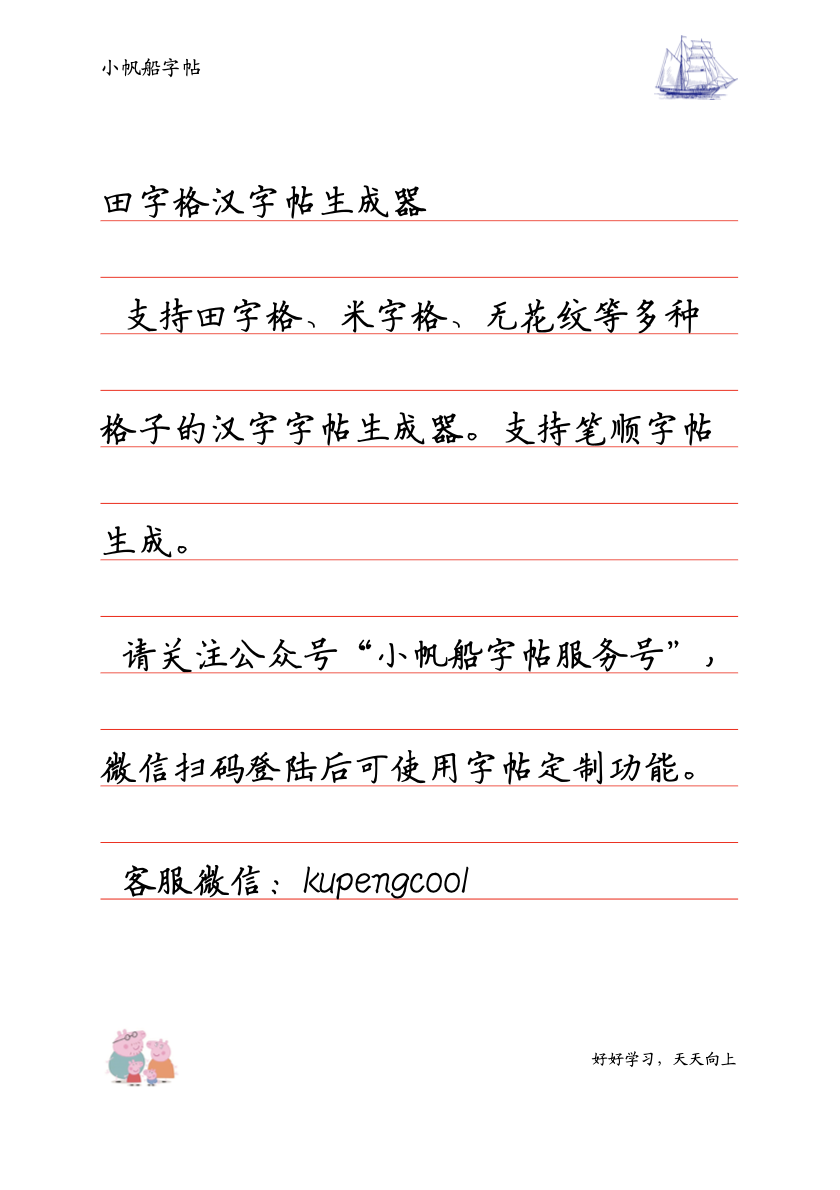 小帆船字帖
田字格汉字帖生成器
支持田字格、米字格、无花纹等多种
格子的汉字字帖生成器。支持笔顺字帖
生成。
请关注公众号“小帆船字帖服务号”，
微信扫码登陆后可使用字帖定制功能。
客服微信：kupengcool
好好学习，天天向上